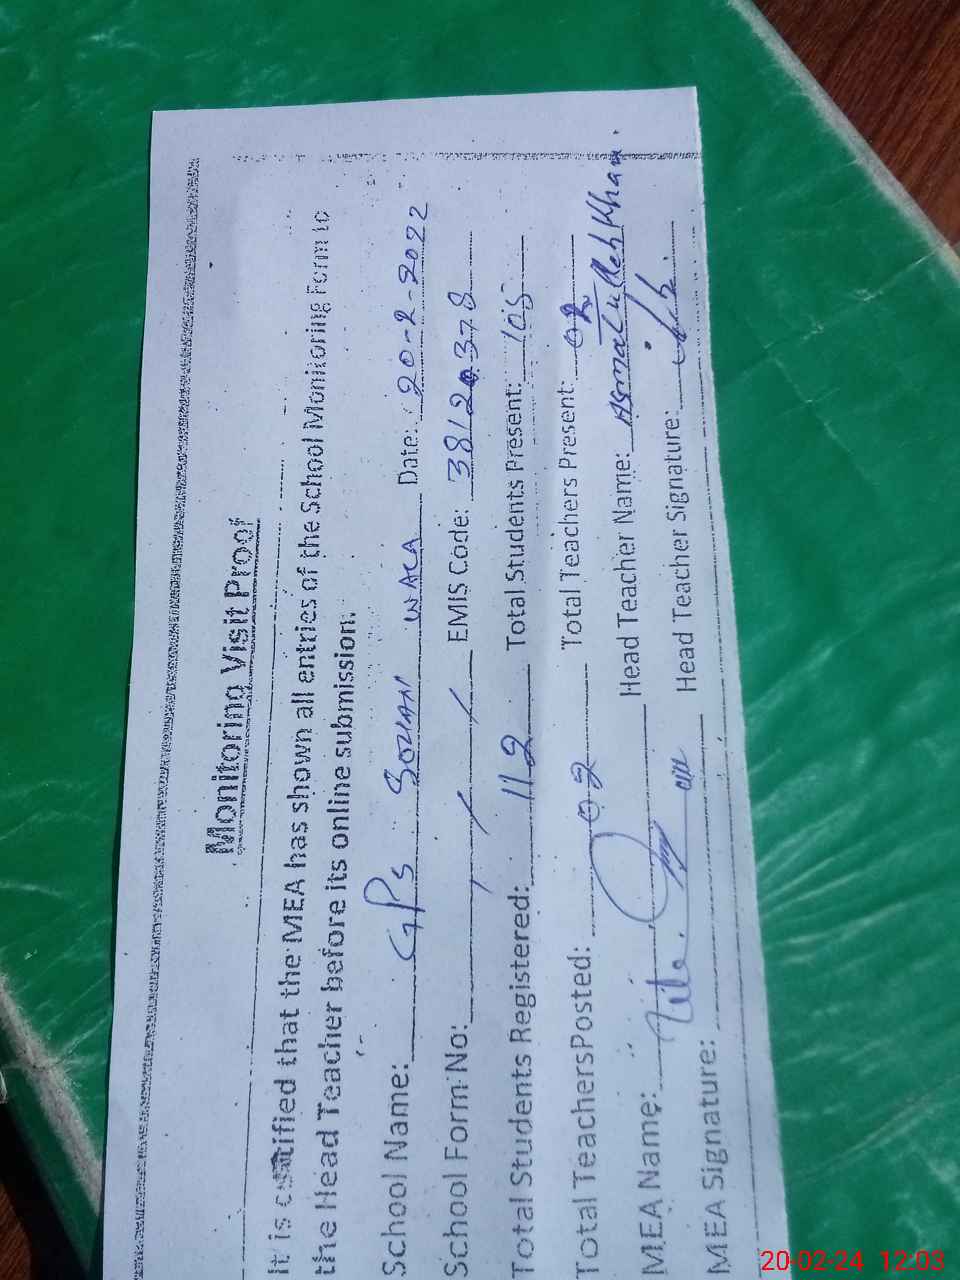 Monitoring Visit Proof
It is certified that the MEA has shown all entries of the School Monitoring Form to
the Head Teacher before its online submission.
School Name: GPS WALA Date: 20-2-2022
School Form No: / / / EMIS Code: 38120378
Total Students Registered: 112 Total Students Present: 105
Total Teachers Posted: 02 Total Teachers Present: 02
MEA Name: Head Teacher Name: Asmatullah Khan.
MEA Signature: Head Teacher Signature:
20-02-24 12:03